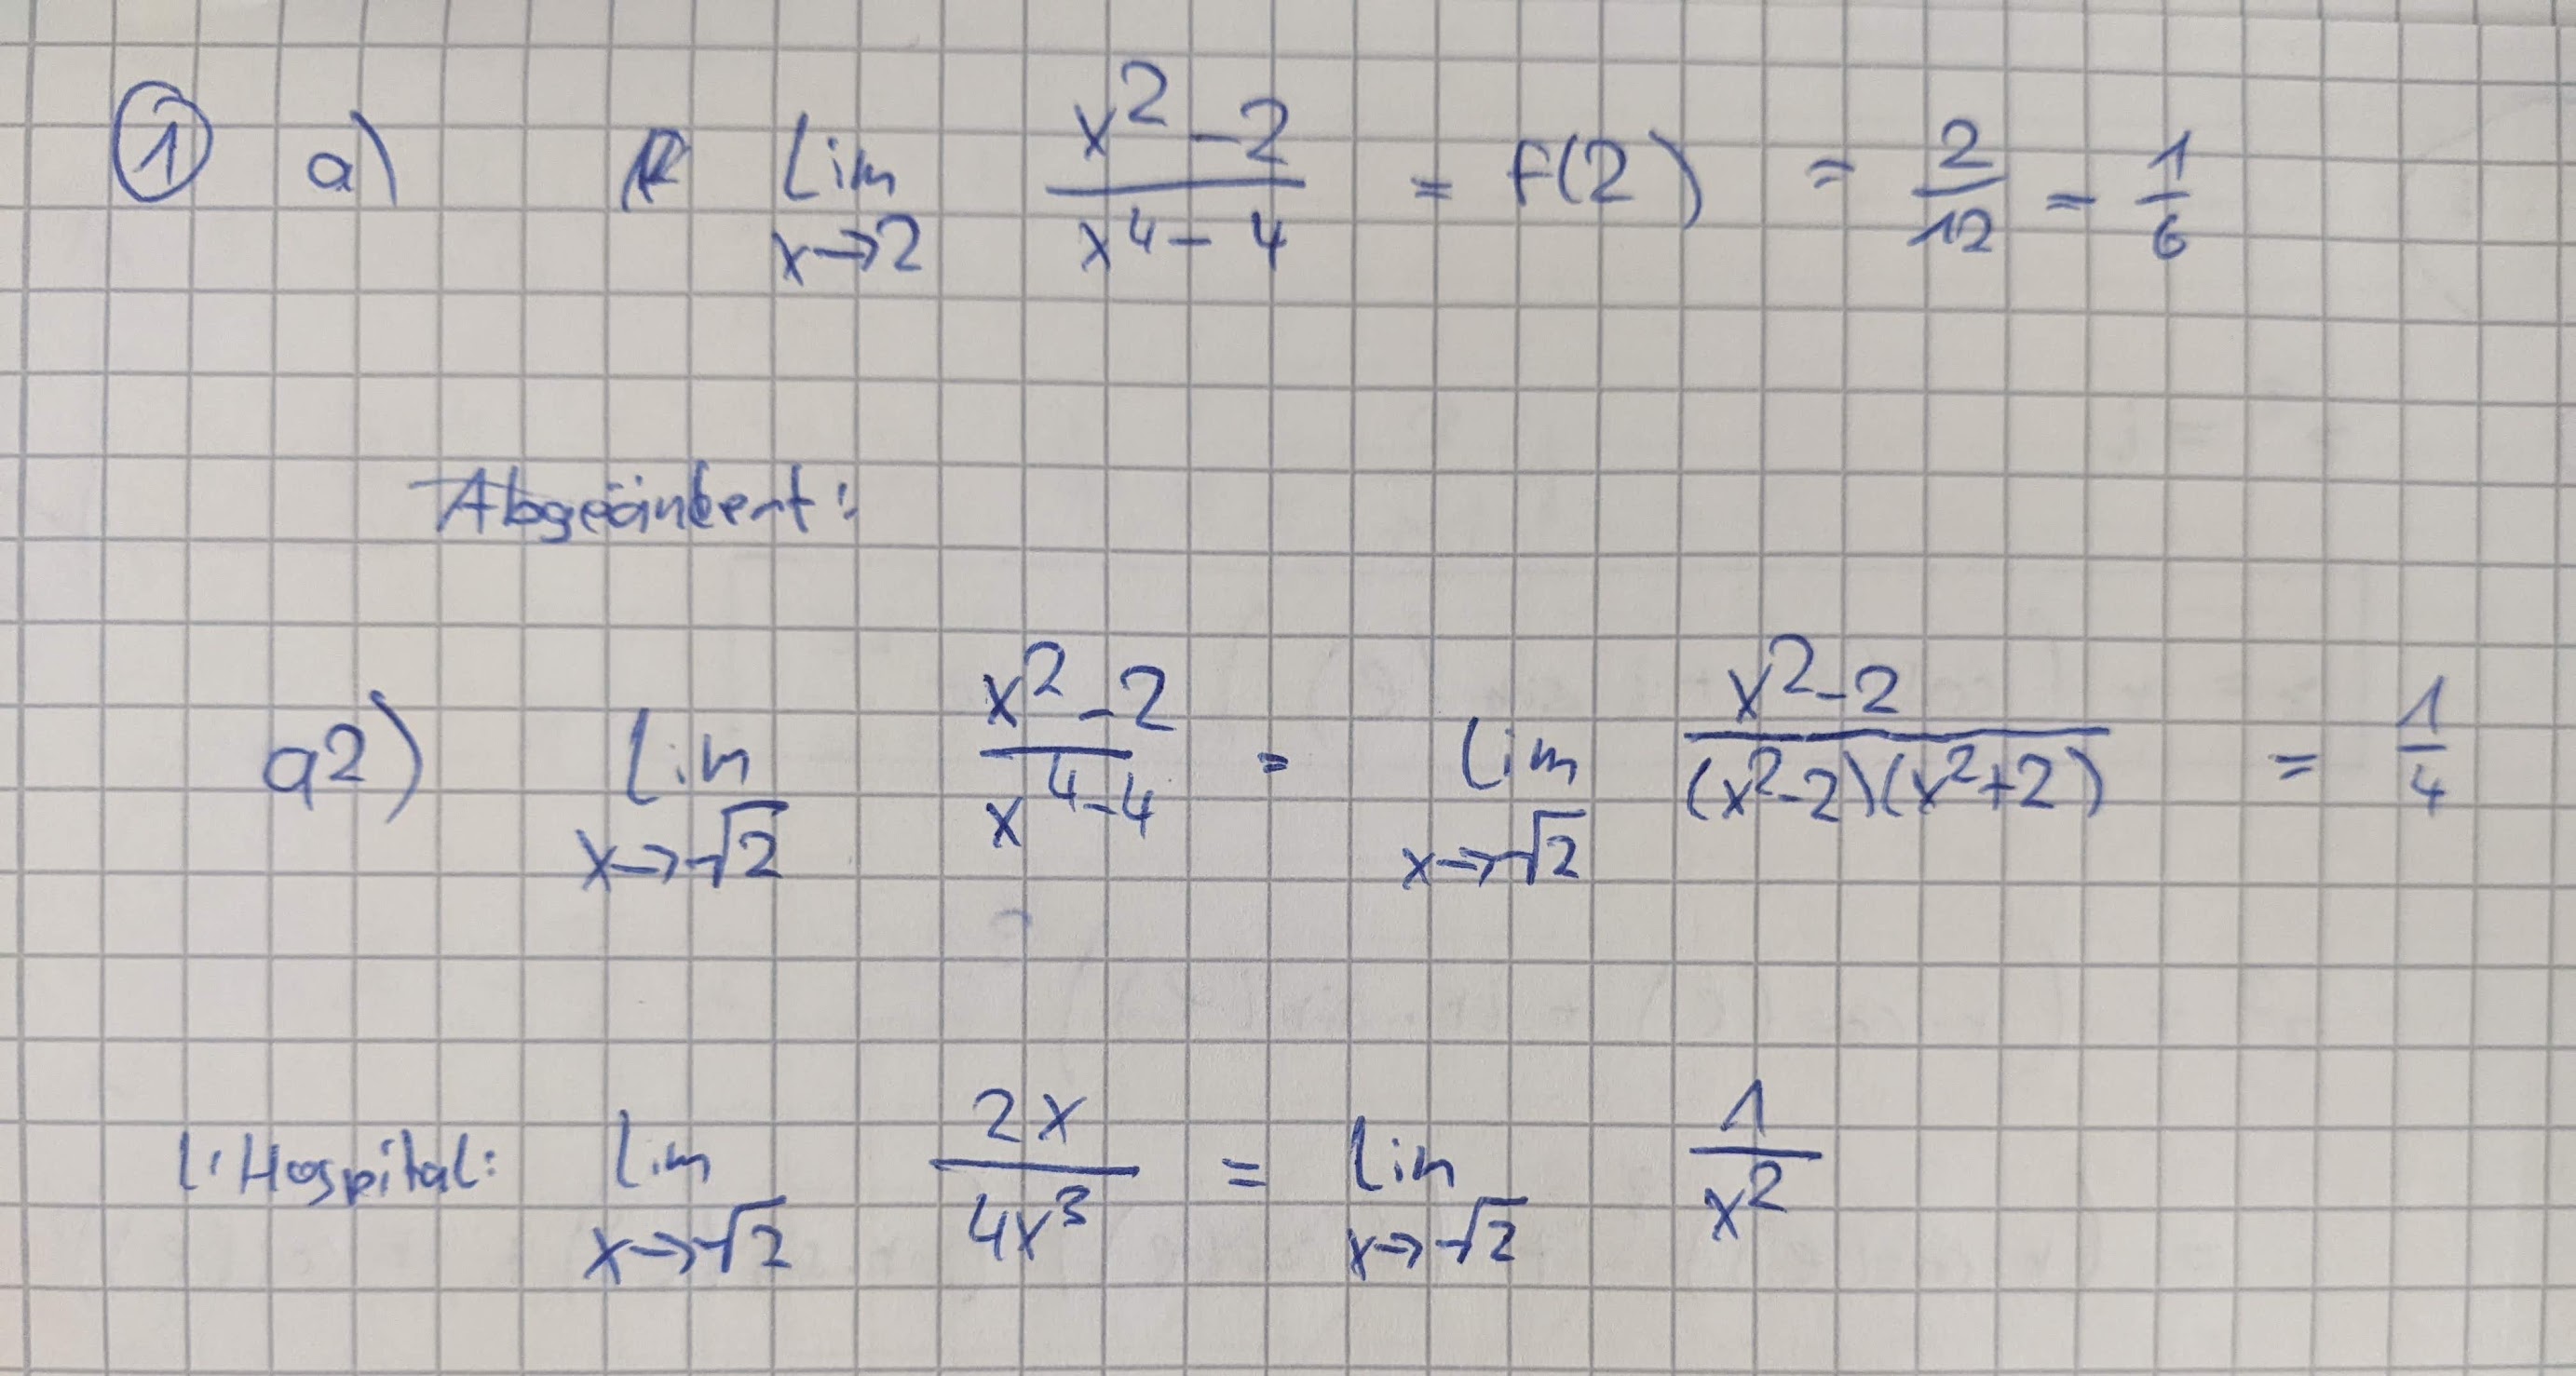 ① a) lim x→2 (x² - 2)/(x⁴ - 4) = f(2) = 2/12 = 1/6
Abgeändert:
a2) lim x→√2 (x² - 2)/(x⁴ - 4) = lim x→√2 (x² - 2)/((x² - 2)(x² + 2)) = 1/4
l'Hospital: lim x→√2 2x/4x³ = lim x→√2 1/x²